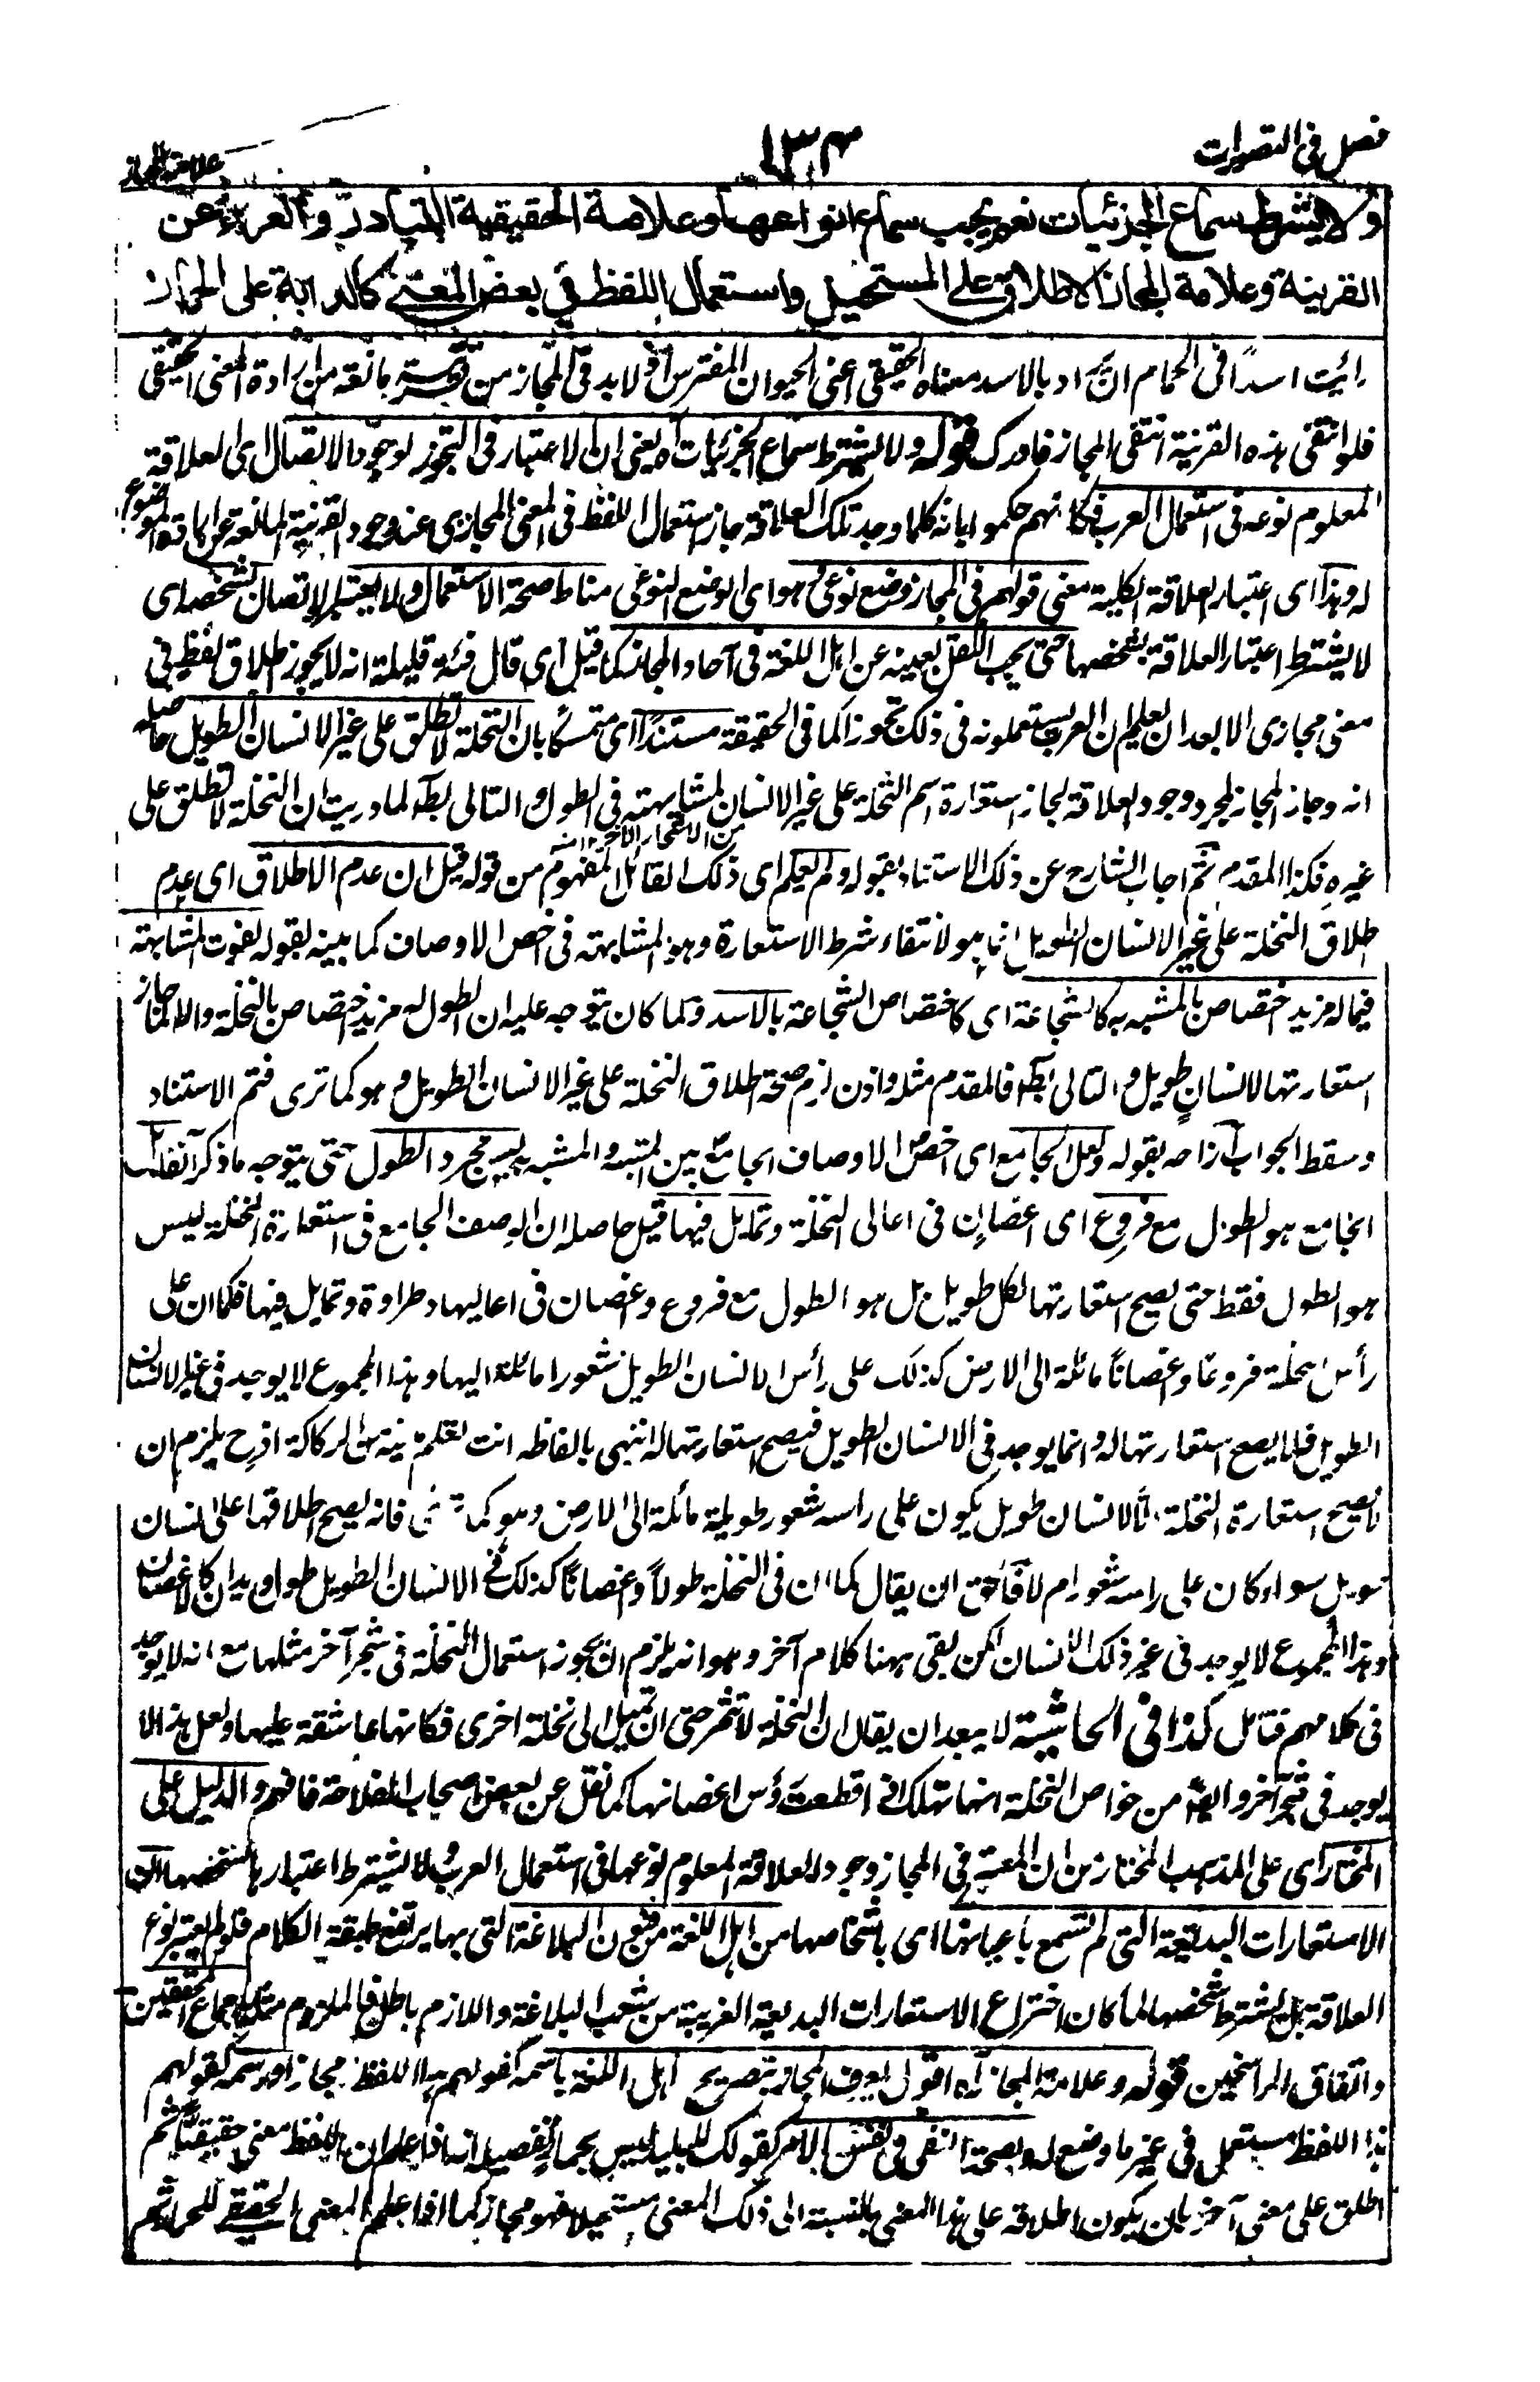 فصل فى التصورات
١٣٤
علاقة المجاز
ولا يشترط سماع الجزئيات نعم يجب سماع انواعها وعلامة الحقيقية التبادر والعراء عن
القرينة وعلامة المجاز الاطلاق على المستحيل واستعمال اللفظ في بعض المعنى كالدابة على الحمار
رائيت اسدًا فى الحمام ان يراد بالاسد معناه الحقيقى اعنى الحيوان المفترس اذ لا بد فى المجاز من قرينة مانعة من ارادة المعنى الحقيقى
فلو انتفى هذه القرينة انتفى المجاز فادرك قوله ولا يشترط سماع الجزئيات اه يعنى ان الاعتبار فى التجوز لوجود الاتصال اى العلاقة
المعلوم نوعه فى استعمال العرب فكانهم حكموا بانه كلما وجد تلك العلاقة جاز استعمال اللفظ فى المعنى المجازى عند وجود القرينة المانعة عن ارادة الموضوع
له وهذا اى اعتبار العلاقة الكلية معنى قولهم فى المجاز وضع نوعى وهو اى الوضع النوعى مناط صحة الاستعمال ولا يعتبر الاتصال بشخصه اى
لا يشترط اعتبار العلاقة بشخصها حتى يجب النقل بعينه عن اهل اللغة فى آحاد المجاز كما قيل اى قال فئة قليلة انه لا يجوز اطلاق لفظ فى
معنى مجازى الا بعد ان يعلم ان العرب يستعملونه فى ذلك تجوزا كما فى الحقيقة مستندًا اى متمسكا بان النخلة لا تطلق على غير الانسان الطويل حاصله
انه لو جاز المجاز بمجرد وجود العلاقة لجاز استعارة اسم النخلة على غير الانسان لمشابهته فى الطول والتالى بط لما دريت ان النخلة لا تطلق على
من الاشجار الاخر
غيره فكذا المقدم ثم اجاب الشارح عن ذلك الاستناد بقوله ولم يعلم اى ذلك القائل المفهوم من قوله قيل ان عدم الاطلاق اى عدم
اطلاق النخلة على غير الانسان الطويل انما هو لانتفاء شرط الاستعارة وهو المشابهة فى اخص الاوصاف كما بينه بقوله لفوت المشابهة
فيما له مزيد اختصاص بالمشبه به كالشجاعة اى كاختصاص الشجاعة بالاسد ولما كان يتوجه عليه ان الطول له مزيد اختصاص بالنخلة والا لما جاز
استعارتها لانسانٍ طويل والتالى بط فالمقدم مثله واذن لزم صحة اطلاق النخلة على غير الانسان الطويل وهو كما ترى فتم الاستناد
وسقط الجواب ازاحه بقوله ولعل الجامع اى اخص الاوصاف الجامع بين المشبه والمشبه به ليس مجرد الطول حتى يتوجه ما ذكر آنفا بل
الجامع هو الطول مع فروع اى اغصان فى اعالى النخلة وتمايل فيها قيل حاصله ان الوصف الجامع فى استعارة النخلة ليس
هو الطول فقط حتى يصح استعارتها لكل طويل بل هو الطول مع فروع واغصان فى اعاليها وطراوة وتمايل فيها فكما ان على
رأس النخلة فروعًا واغصانًا مائلة الى الارض كذلك على رأس الانسان الطويل شعورا مائلة اليها وهذا المجموع لا يوجد فى غير الانسان
الطويل فلا يصح استعارتها له وانما يوجد فى الانسان الطويل فيصح استعارتها له انتهى بالفاظه انت تعلم ما فيه من الركاكة اذ ح يلزم ان
لا يصح استعارة النخلة الا لانسان طويل يكون على راسه شعور طويلة مائلة الى الارض وهو كما ترى فانه يصح اطلاقها على انسان
طويل سواء كان على راسه شعور ام لا فالحق ان يقال كما ان فى النخلة طولاً واغصانًا كذلك فى الانسان الطويل طول ويدان كالاغصان
وهذا المجموع لا يوجد فى غير ذلك الانسان لكن بقى ههنا كلام آخر وهو انه يلزم ان يجوز استعمال النخلة فى شجر آخر مثلها مع انه لا يوجد
فى كلامهم فتامل كذا فى الحاشية لا يبعد ان يقال ان النخلة لا تثمر حتى ان تميل الى نخلة اخرى فكانها عاشقة عليها ولعل هذا لا
يوجد فى شجر آخر وايضًا من خواص النخلة انها تهلك اذا قطعت رؤس اغصانها كما نقل عن بعض اصحاب الفلاحة فافهم والدليل على
المختار اى على المذهب المختار من ان المعتبر فى المجاز وجود العلاقة المعلوم نوعها فى استعمال العرب ولا يشترط اعتبارها بشخصها ان
الاستعارات البديعة التى لم تسمع باعيانها اى باشخاصها من اهل اللغة من فنون البلاغة التى بها يرتفع طبقة الكلام فلو لم يعتبر نوع
العلاقة بل يشترط شخصها لما كان اختراع الاستعارات البديعة الغريبة من شعب البلاغة واللازم باطل فالملزوم مثله باجماع المحققين
واتفاق الراسخين قوله وعلامة المجاز اه اقول يعرف المجاز بتصريح اهل اللغة باسمه كقولهم هذا اللفظ مجاز او برسمه كقولهم
هذا اللفظ مستعمل فى غير ما وضع له وبصحة النفى فى نفس الامر كقولك للبليد ليس بحمار تفصيله انه اذا علم ان للفظ معنى حقيقيا ثم
اطلق على معنى آخر بان يكون اطلاقه على هذا المعنى بالنسبة الى ذلك المعنى مستحيلا فهو مجاز كما اذا علم المعنى الحقيقى للحمار ثم